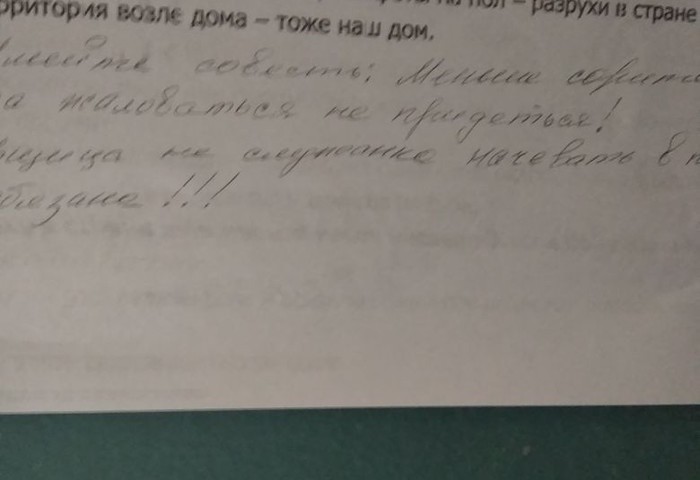 пол – разрухи в стране
рритория возле дома – тоже наш дом.
имейте совесть! Меньше сорит
а жаловаться не придеться!
щица не служанка начевать в п
бязана !!!